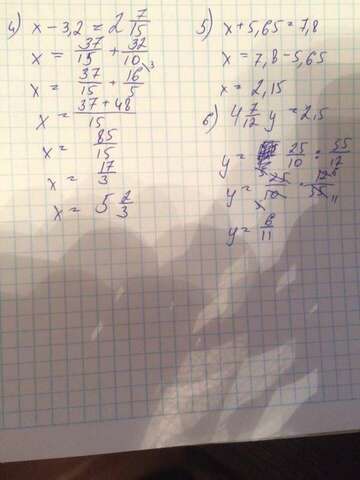 4) x - 3,2 = 2 7/15
x = 37/15 + 32/10
x = 37/15 + 16/5 \3
x = (37 + 48)/15
x = 85/15
x = 17/3
x = 5 2/3
5) x + 5,65 = 7,8
x = 7,8 - 5,65
x = 2,15
6) 4 7/12 y = 2,5
y = 25/10 : 55/12
y = 25/10 · 12/55
y = 6/11